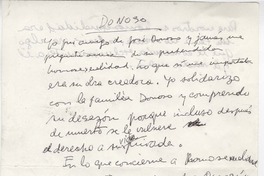 DONOSO
Yo fui amigo de José Donoso y jamás me
pregunté acerca de su pretendida
homosexualidad. Lo que sí me importaba
era su obra creadora. Yo solidarizo
con la familia Donoso y comprendo
su desazón porque incluso después
de muerto se le vulnere
el derecho a su vida privada.
En lo que concierne a